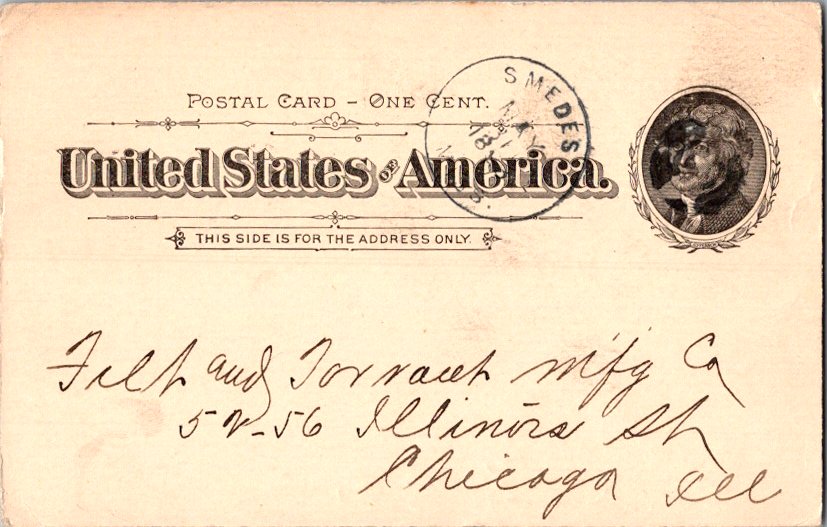 POSTAL CARD – ONE CENT.
United States of America.
THIS SIDE IS FOR THE ADDRESS ONLY.
SMEDES
MAY
Felt and Torrant Mfg Co
52-56 Illinois St
Chicago Ill